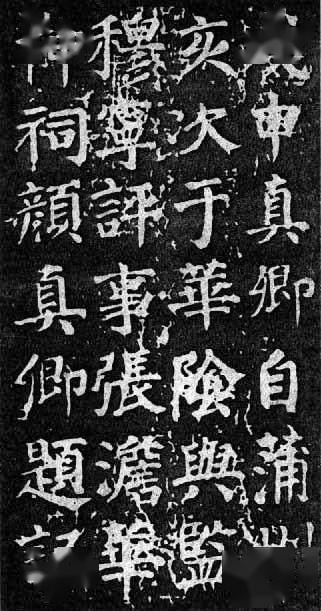 申真卿自蒲
亥次于華陰與監
穆寧評事張澹華
神祠顏真卿題記